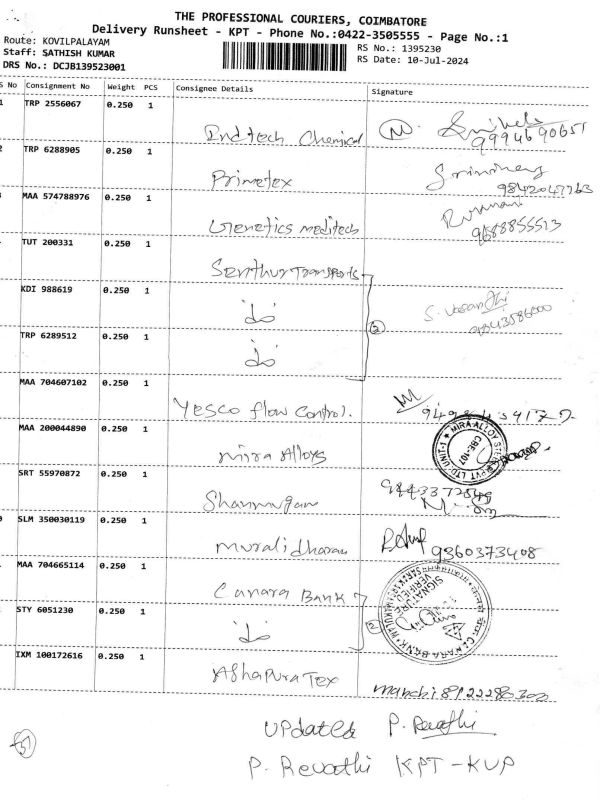 THE PROFESSIONAL COURIERS, COIMBATORE
Delivery Runsheet - KPT - Phone No.:0422-3505555 - Page No.:1
Route: KOVILPALAYAM
RS No.: 1395230
Staff: SATHISH KUMAR
RS Date: 10-Jul-2024
DRS No.: DCJB139523001
S No Consignment No Weight PCS Consignee Details Signature
1 TRP 2556067 0.250 1
Indtech Chemical 9994690651
2 TRP 6288905 0.250 1
Primetex 9842047763
MAA 574788976 0.250 1
Genetics meditech 9688855513
TUT 200331 0.250 1
Senthur Transports
KDI 988619 0.250 1
S. Vasanthi
TRP 6289512 0.250 1
3
MAA 704607102 0.250 1
Yesco flow Control.
MAA 200044890 0.250 1
Mira Alloys
MIRA ALLOY
PVT LTD UNIT-1
CBE-107
SRT 55970872 0.250 1
Shanmugam
SLM 350030119 0.250 1
Muralidharan 9360373408
MAA 704665114 0.250 1
Canara Bank
STY 6051230 0.250 1
2
SIGNATURE
VERIFIED
CANARA BANK
IXM 100172616 0.250 1
Ashapura Tex
Updated P. Revathi
P. Revathi KPT - KUP